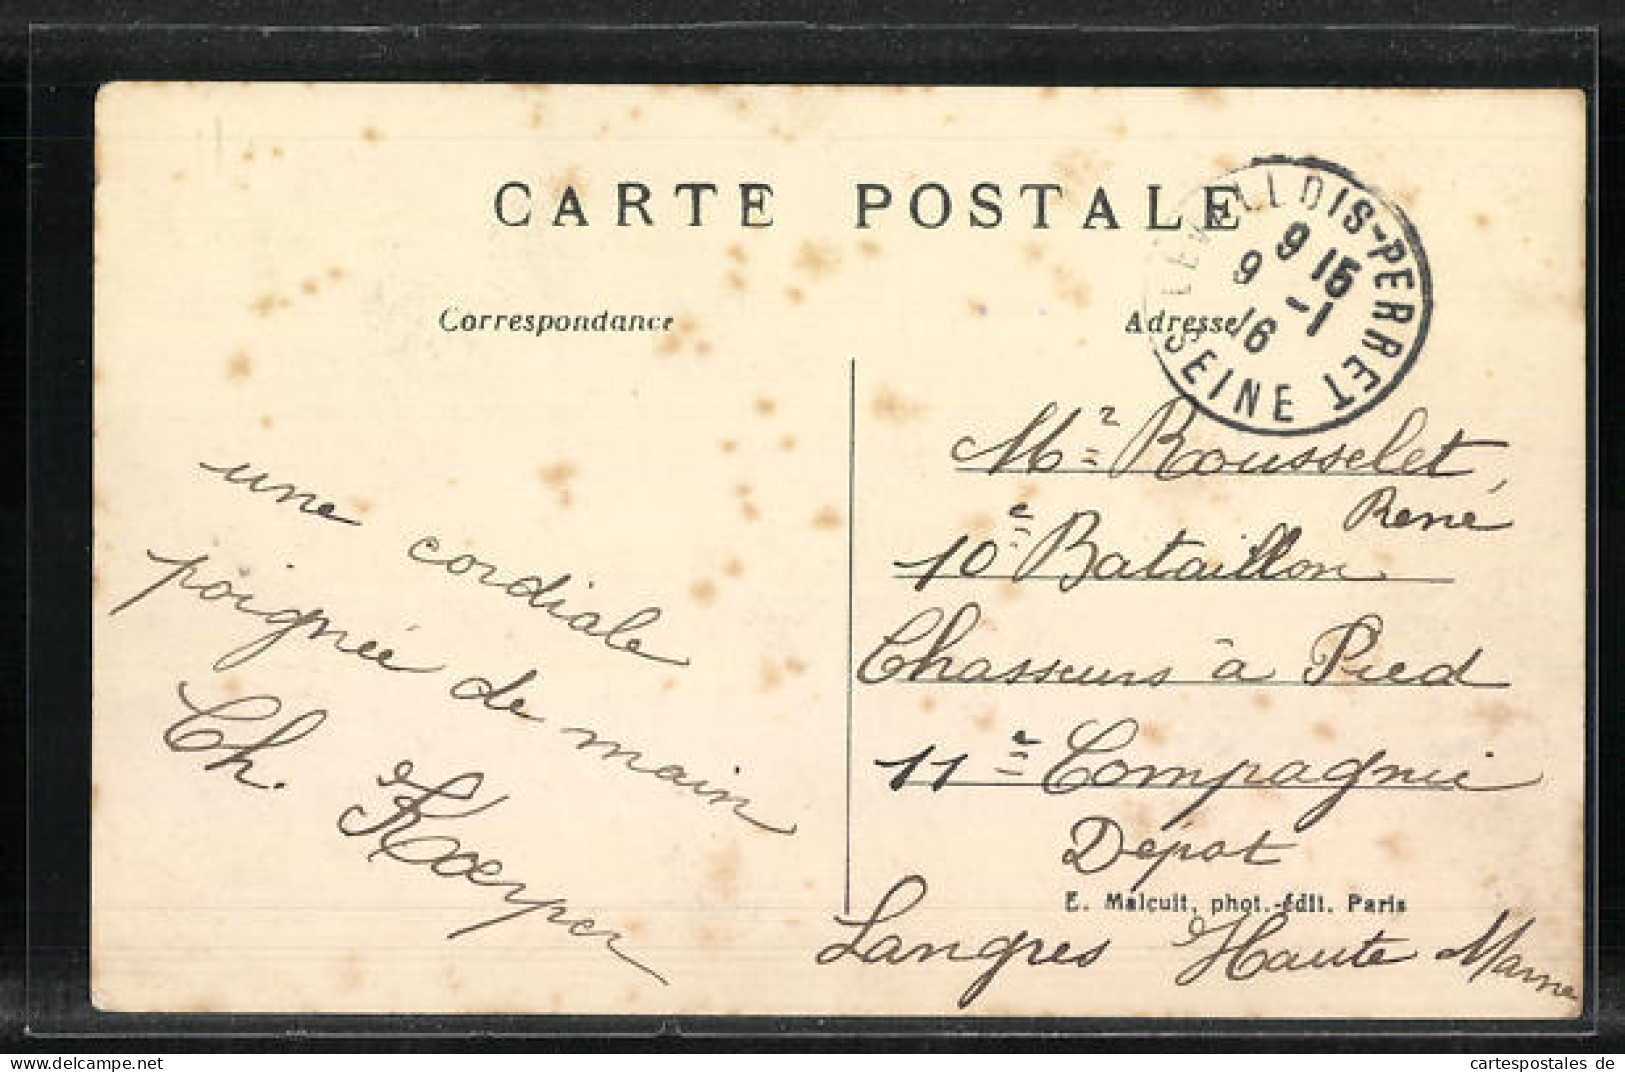 CARTE POSTALE
Correspondance
Adresse
LEVALLOIS-PERRET
9 15
9 -1
16
SEINE
une cordiale
poignée de main
Ch. Koerper
Mr Rousselet,
René
10e Bataillon
Chasseurs à Pied
11e Compagnie
Dépot
E. Malcuit, phot.-édit. Paris
Langres Haute Marne
cartespostales de